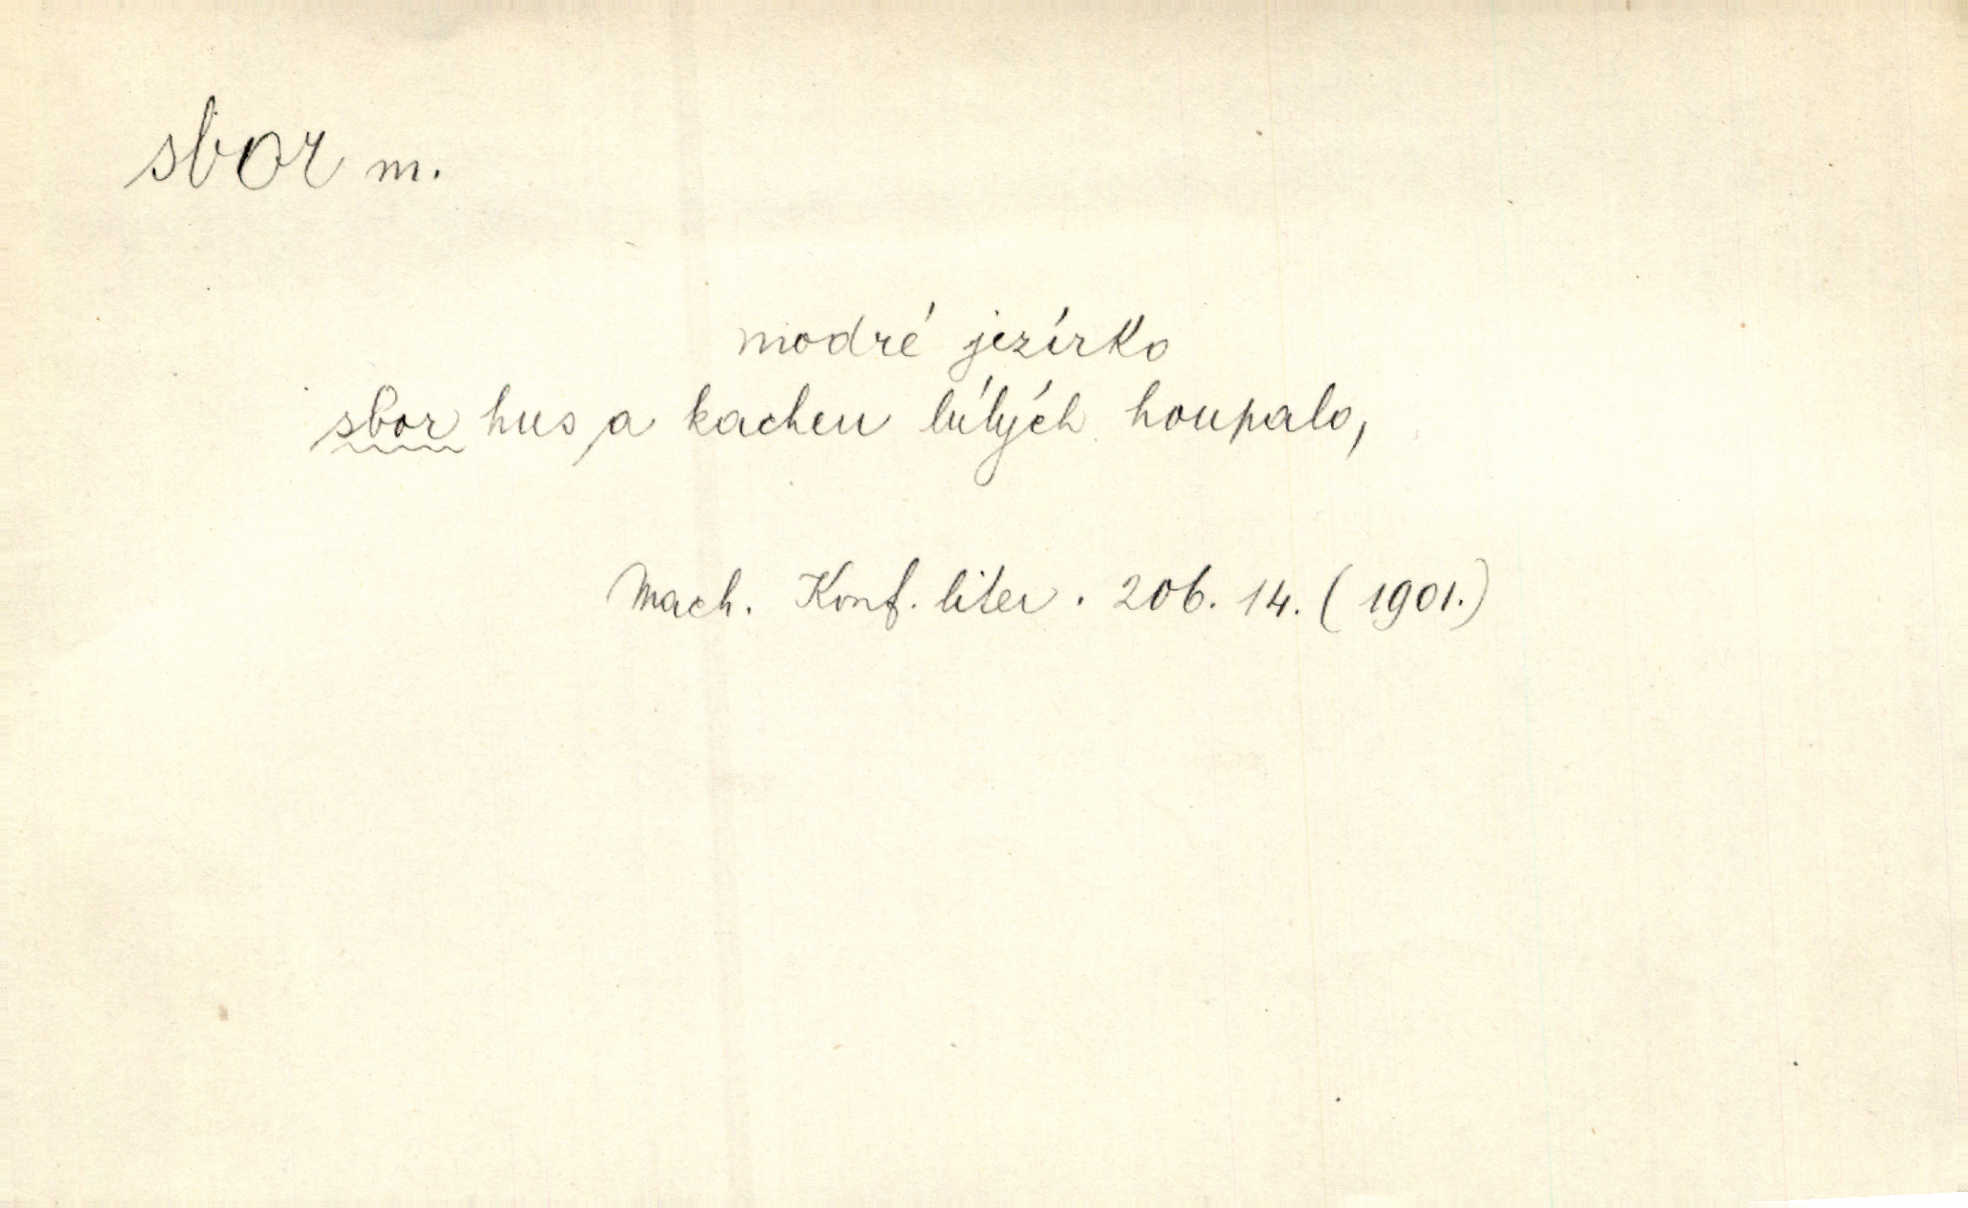 sbor m.
modré jezírko
sbor hus a kachen bílých houpalo,
Mach. Konf. liter. 206. 14. (1901.)